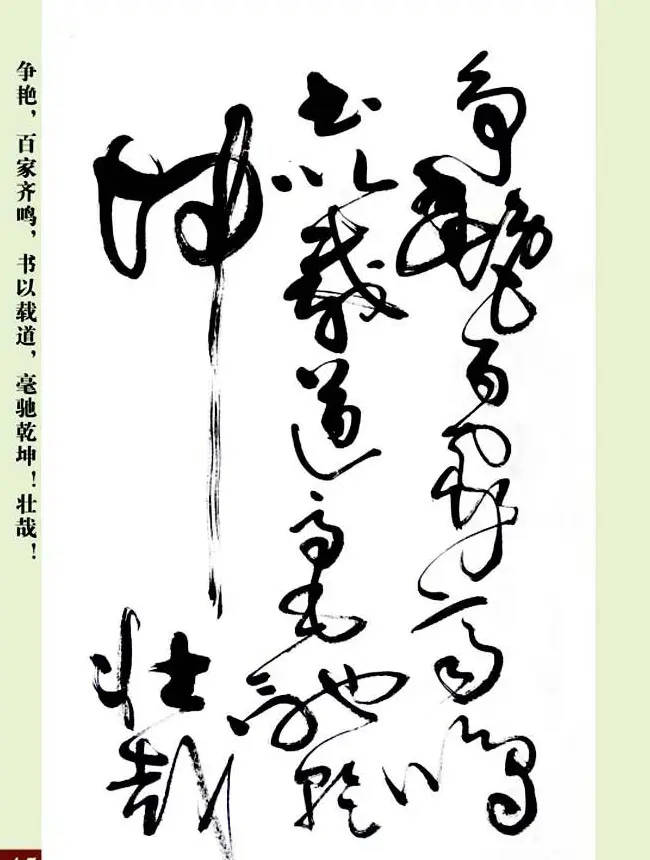 争艳百家齐鸣
书以载道毫驰乾
坤壮哉
争艳，百家齐鸣，书以载道，毫驰乾坤！壮哉！